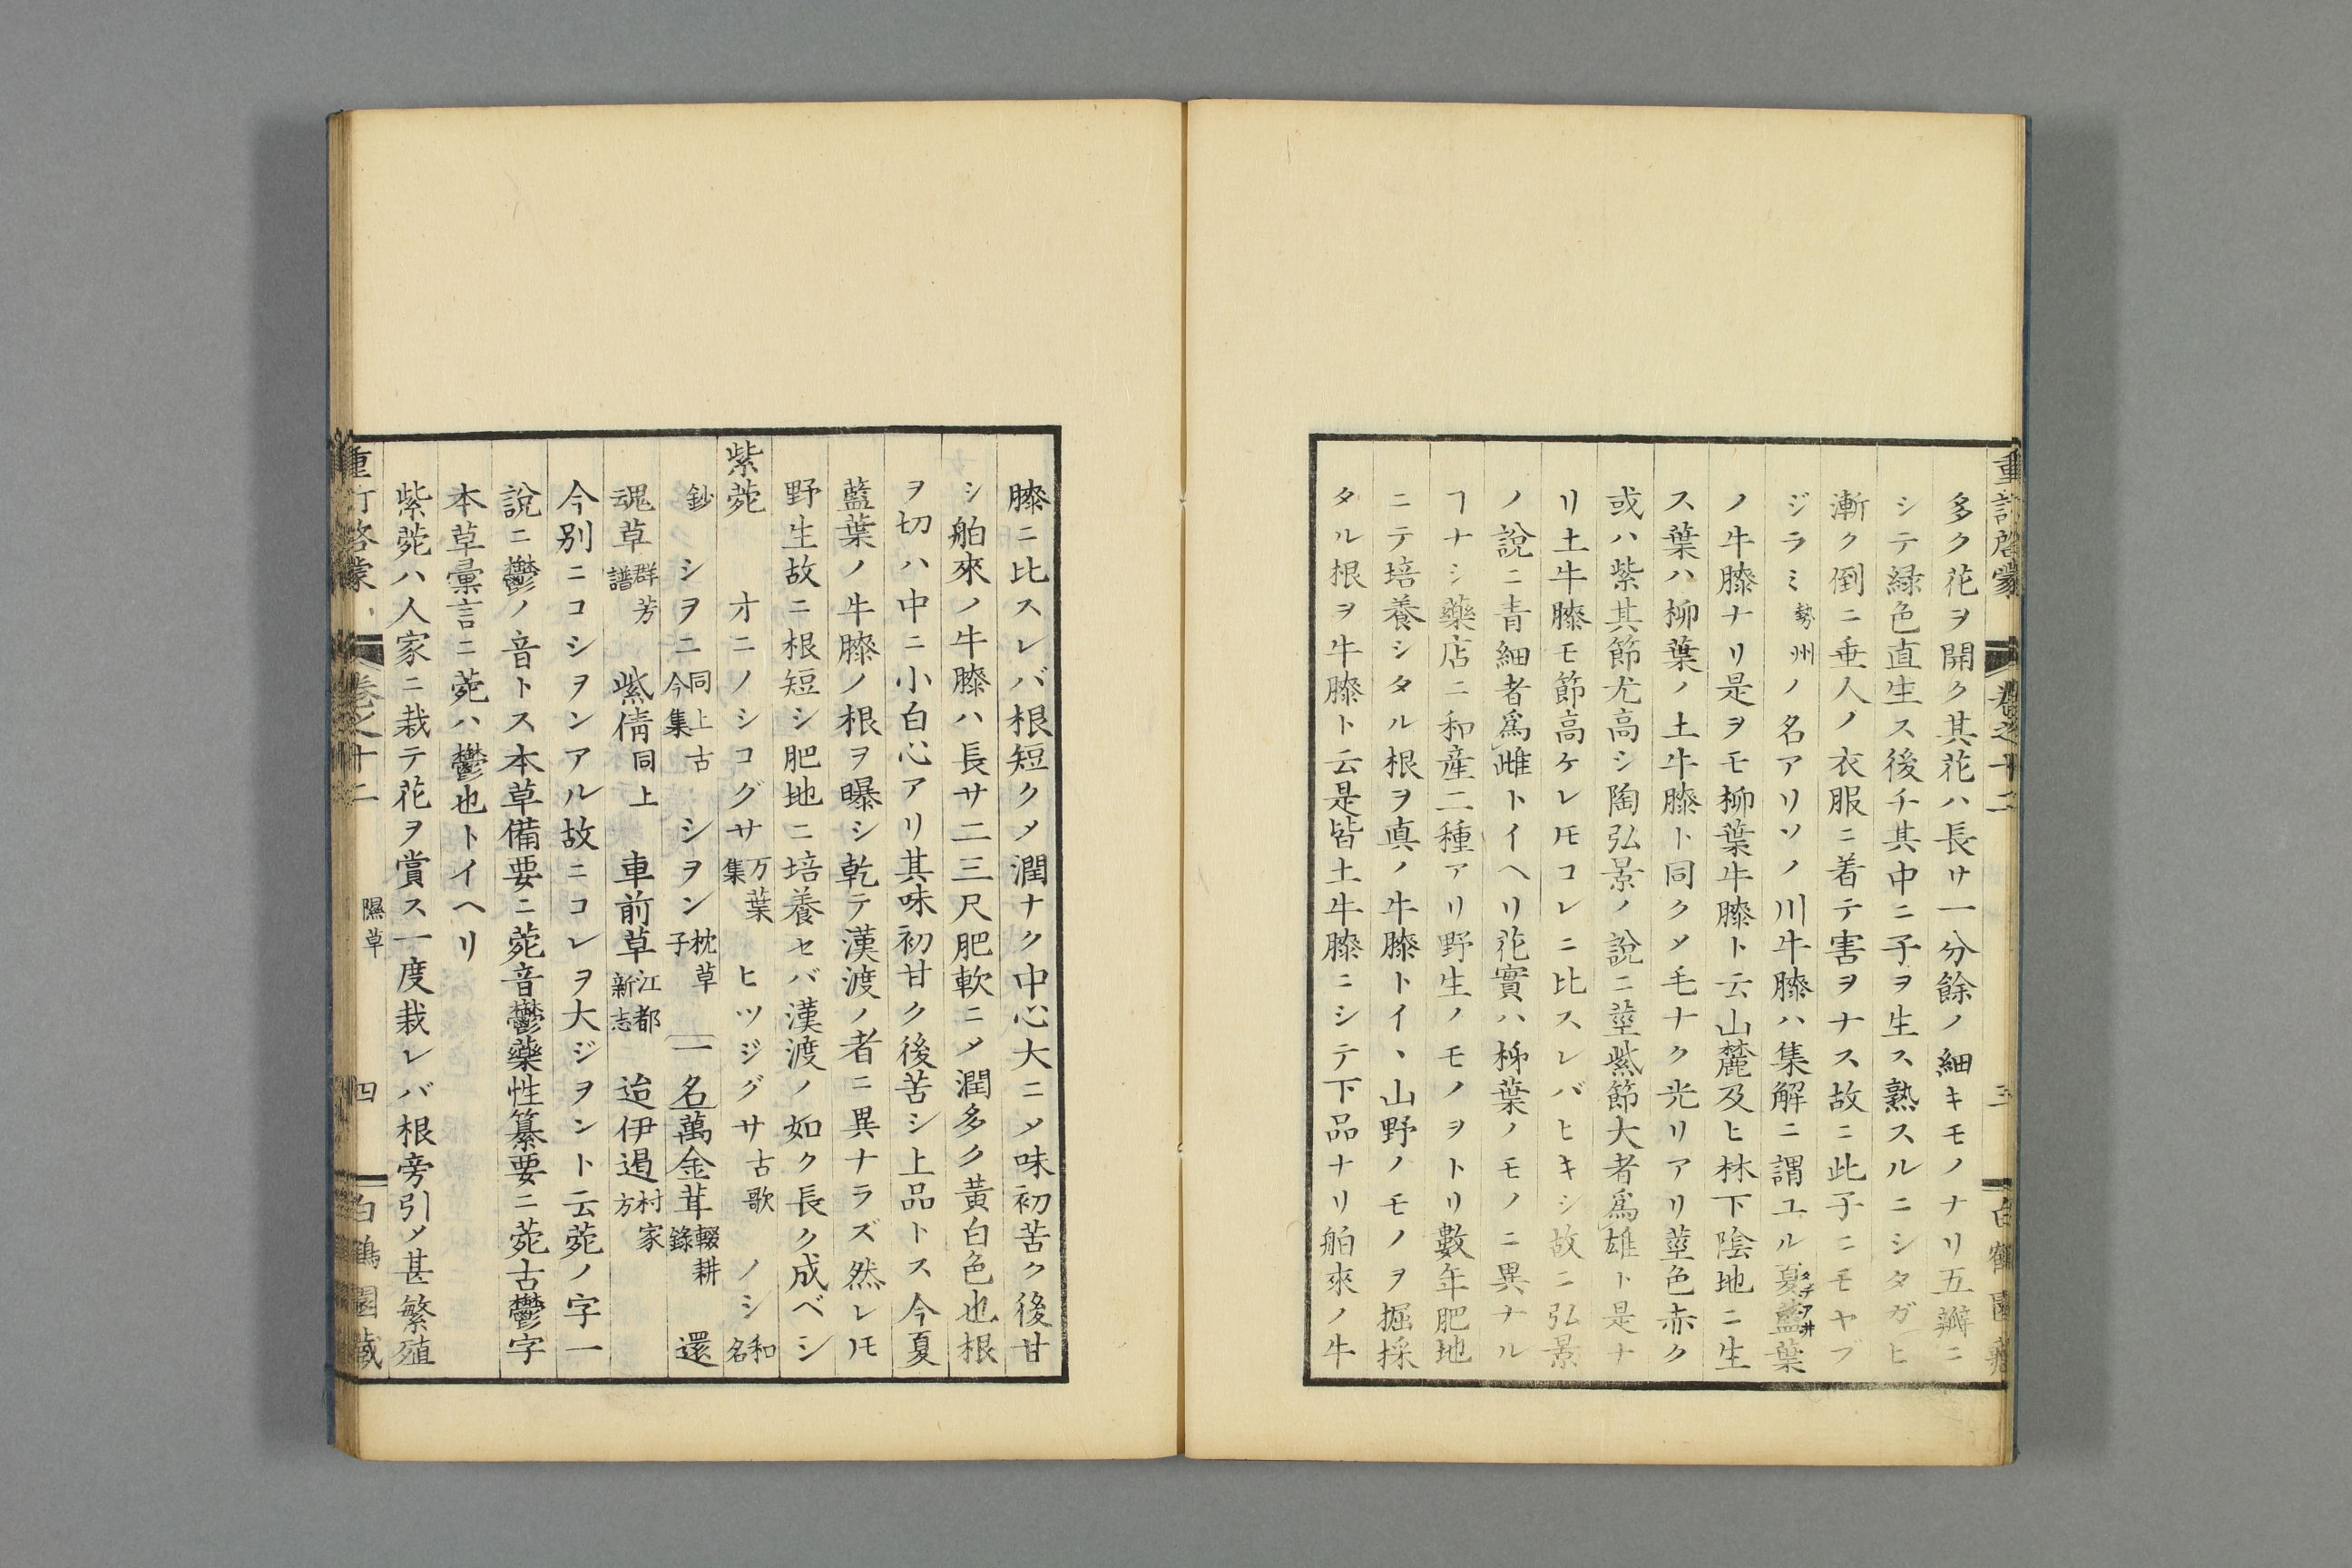 重訂啓蒙 卷之十二 三 白鶴園藏
多ク花ヲ開ク其花ハ長サ一分餘ノ細キモノナリ五瓣ニ
シテ緑色直生ス後チ其中ニ子ヲ生ス熟スルニシタガヒ
漸ク倒ニ垂人ノ衣服ニ着テ害ヲナス故ニ此子ニモヤブ
ジラミ勢州ノ名アリソノ川牛膝ハ集解ニ謂ユル夏藍葉タデアヰ
ノ牛膝ナリ是ヲモ柳葉牛膝ト云山麓及ヒ林下陰地ニ生
ス葉ハ柳葉ノ土牛膝ト同クメ毛ナク光リアリ莖色赤ク
或ハ紫其節尤高シ陶弘景ノ説ニ莖紫節大者爲雄ト是ナ
リ土牛膝モ節高ケレ𪜈コレニ比スレバヒキシ故ニ弘景
ノ説ニ青細者爲雌トイヘリ花實ハ柳葉ノモノニ異ナル
ヿナシ藥店ニ和産二種アリ野生ノモノヲトリ數年肥地
ニテ培養シタル根ヲ真ノ牛膝トイヽ山野ノモノヲ掘採
タル根ヲ牛膝ト云是皆土牛膝ニシテ下品ナリ舶來ノ牛
膝ニ比スレバ根短クメ潤ナク中心大ニメ味初苦ク後甘
シ舶來ノ牛膝ハ長サ二三尺肥軟ニメ潤多ク黄白色也根
ヲ切ハ中ニ小白心アリ其味初甘ク後苦シ上品トス今夏
藍葉ノ牛膝ノ根ヲ曝シ乾テ漢渡ノ者ニ異ナラズ然レ𪜈
野生故ニ根短シ肥地ニ培養セバ漢渡ノ如ク長ク成ベシ
紫菀 オニノシコグサ万葉集 ヒツジグサ古歌 ノシ和名
鈔 シヲニ同上古今集 シヲン枕草子 一名萬金茸輟耕錄 還
魂草群芳譜 紫倩同上 車前草江都新志 迨伊遏村家方
今別ニコシヲンアル故ニコレヲ大ジヲント云菀ノ字一
説ニ鬱ノ音トス本草備要ニ菀音鬱藥性纂要ニ菀古鬱字
本草彙言ニ菀ハ鬱也トイヘリ
紫菀ハ人家ニ栽テ花ヲ賞ス一度栽レバ根旁引メ甚繁殖
重訂啓蒙 卷之十二 隰草 四 白鶴園藏